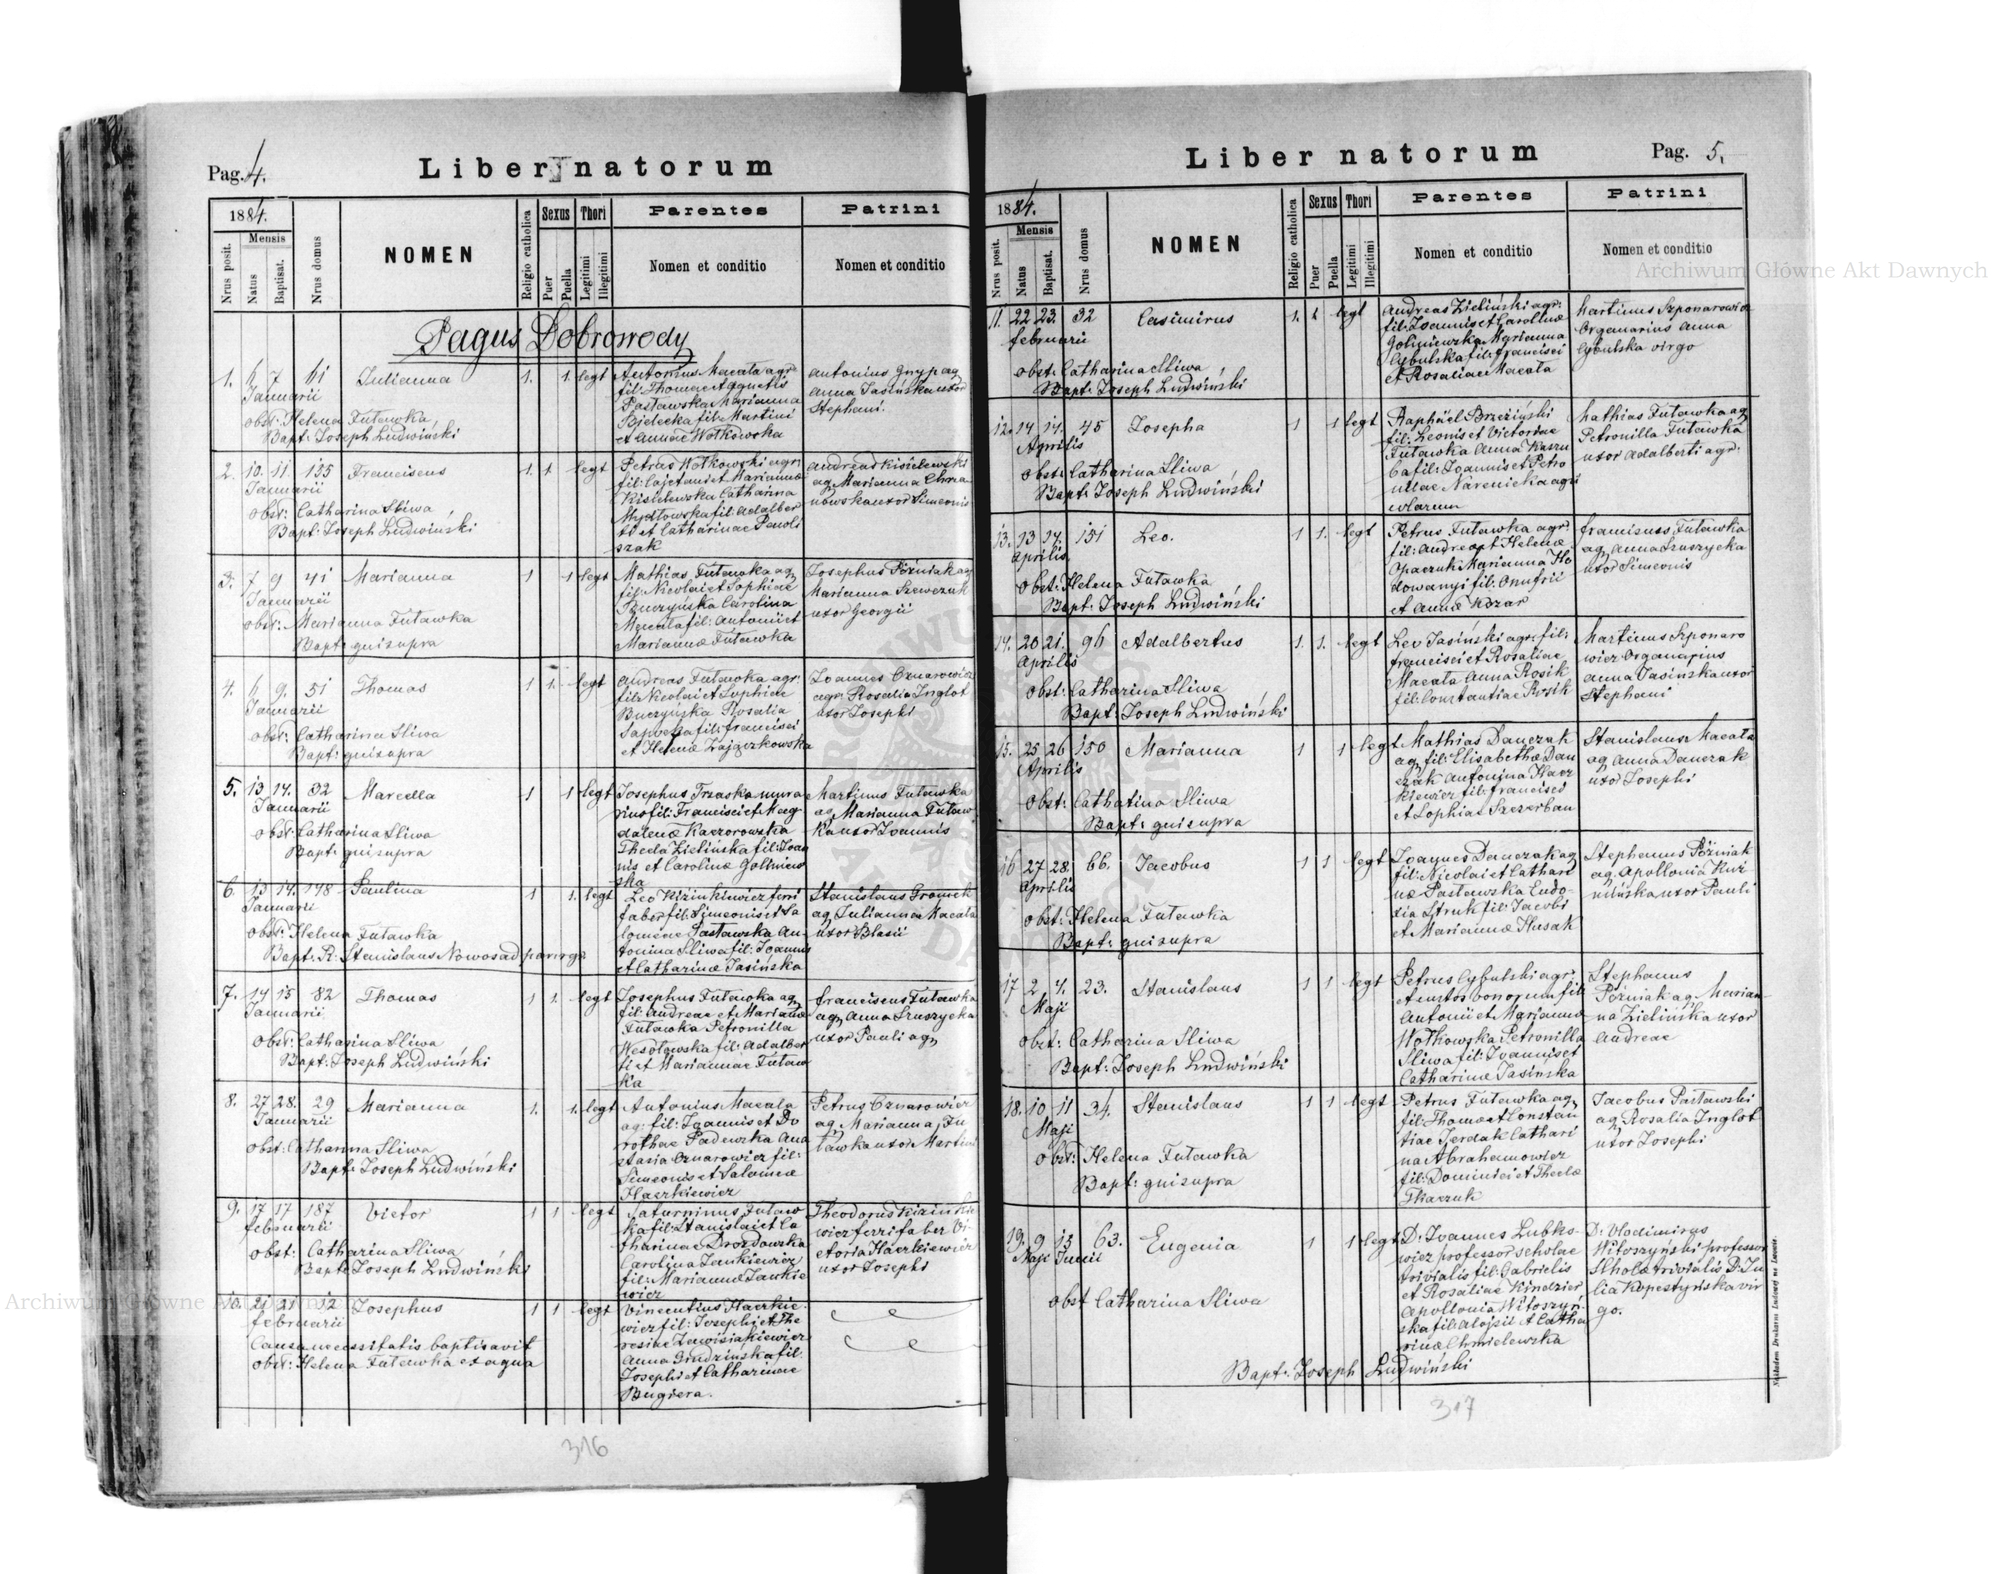 Pag. 4.
Liber natorum
1884.
Nrus posit.
Mensis
Natus
Baptisat.
Nrus domus
NOMEN
Religio catholica
Sexus
Puer
Puella
Thori
Legitimi
Illegitimi
Parentes
Nomen et conditio
Patrini
Nomen et conditio
Pagus Dobrowody
1. 6 7 61 Julianna 1. 1. legt
Januarii
obst: Helena Futawka
Bapt: Joseph Ludwiński
Antonius Macała agr:
fil: Thomae et Agnetis
Pasławska Marianna
Bielecka fil: Martini
et Annae Wołkowska
Antonius Gnyp ag
Anna Jasińska uxor
Stephani.
2. 10. 11. 135 Franciscus 1. 1. legt
Januarii
obst: Catharina Sliwa
Bapt: Joseph Ludwiński
Petrus Wołkowski agr:
fil: Cajetani et Mariannae
Kisielewska Catharina
fil: Adalber
ti et Catharinae
szak
Andreas Kisielewski
ag, Marianna Chrza
nowska uxor Simeonis
3. 7 9 41 Marianna 1 1 legt
Januarii
obst: Marianna Futawka
Bapt: qui supra
Mathias Futawka ag,
fil: Nicolai et Sophiae
Buczyńska Carolina
Macała fil: Antonii et
Mariannae Futawka
Josephus Późniak ag
Marianna Szewczuk
uxor Georgii
4. 6 9. 51 Thomas 1 1. legt
Januarii
obst: Catharina Sliwa
Bapt: qui supra
Andreas Futawka agr:
fil: Nicolai et Sophiae
Buczyńska Rosalia
fil: Francisci
et Helenae Zajączkowska
Joannes Cznarowicz
agr: Rosalia Inglot
uxor Josephi
5. 13 14. 32 Marcella 1 1 legt
Januarii
obst: Catharina Sliwa
Bapt: qui supra
Josephus Trzaska mura
rius fil: Francisci et Mag
dalenae Kaczorowska
Thecla Zielińska fil: Joan
nis et Carolinae Goliniew
ska
Martinus Futawska
ag, Marianna Futaw
ka uxor Joannis
6. 13 14. 148 Paulina 1 1. legt
Januarii
obst: Helena Futawka
Bapt: R: Stanislaus Nowosad
Leo Kizinkiewicz feri
faber fil: Simeonis et Sa
lomeae Pasławska An
tonina Sliwa fil: Joannis
et Catharinae Jasińska
Stanislaus Gronick
ag, Julianna Macała
uxor Blasii
7. 14 15 82 Thomas 1 1. legt
Januarii
obst: Catharina Sliwa
Bapt: Joseph Ludwiński
Josephus Futawka ag,
fil: Andreae et Mariannae
Futawka Petronilla
Wesołowska fil: Adalber
ti et Mariannae Futaw
ka
Franciscus Futawka
ag, Anna Szuszycka
uxor Pauli ag,
8. 27 28. 29 Marianna 1. 1. legt
Januarii
obst: Catharina Sliwa
Bapt: Joseph Ludwiński
Antonius Macała
ag: fil: Joannis et Do
rothae Padewska Ana
stasia Cznarowicz fil:
Simeonis et Salomeae
Haczkiewicz
Petrus Cznarowicz
ag, Marianna Fu
tawka uxor Martini
9. 17 17 187 Victor 1 1 legt
februarii
obst: Catharina Sliwa
Bapt: Joseph Ludwiński
Saturninus Futaw
ka fil: Stanislai et Ca
tharinae Drozdowska
Carolina Jankiewicz
fil: Mariannae Jankie
wicz
Theodorus Kizinkie
wicz ferri faber Vi-
ctoria Haczkiewicz
uxor Josephi
10. 21 21 12 Josephus 1 1 legt
februarii
Causa necessitatis baptisavit
obst: Helena Futawka ex aqua
Vincentius Haczkie-
wicz fil: Josephi et The
resiae Zawisiakiewicz
Anna Grudzińska fil:
Josephi et Catharinae
Bugiera.
316
Liber natorum
Pag. 5.
1884.
Nrus posit.
Mensis
Natus
Baptisat.
Nrus domus
NOMEN
Religio catholica
Sexus
Puer
Puella
Thori
Legitimi
Illegitimi
Parentes
Nomen et conditio
Patrini
Nomen et conditio
11. 22 23. 32 Casimirus 1. 1 legt
februarii
obst: Catharina Sliwa
Bapt: Joseph Ludwiński
Andreas Zieliński agr:
fil: Joannis et Carolinae
Goliniewska Marianna
Cybulska fil: Francisci
et Rosaliae Macała
Martinus Szponarowicz
Organarius Anna
Cybulska virgo
12. 14 14. 45 Josepha 1 1 legt
Aprilis
obst: Catharina Sliwa
Bapt: Joseph Ludwiński
Raphaël Brzeziński
fil: Leonis et Victoriae
Futawka Anna Kaszu
ba fil: Joannis et Petro
nillae Narenicka agri
colarum
Mathias Futawka ag,
Petronilla Futawka
uxor Adalberti agr:
13. 13 14. 151 Leo. 1 1. legt
Aprilis
obst: Helena Futawka
Bapt: Joseph Ludwiński
Petrus Futawka agr
fil: Andreae et Helenae
Marianna Ho
dowanyi fil: Onufrii
et Annae Kozar
Franciscus Futawka
ag, Anna Szuszycka
uxor Simeonis
14. 20 21. 96 Adalbertus 1. 1. legt
Aprilis
obst: Catharina Sliwa
Bapt: Joseph Ludwiński
Leo Jasiński agr: fil:
Francisci et Rosaliae
Macała Anna Rosik
fil: Constantiae Rosik
Martinus Szponaro
wicz Organarius
Anna Jasińska uxor
Stephani
15. 25 26 150 Marianna 1 1 legt
Aprilis
obst: Catharina Sliwa
Bapt: qui supra
Mathias Danczak
ag, fil: Elisabethae Dan
czak Antonina Hacz
kiewicz fil: Francisci
et Sophiae Szczerban
Stanislaus Macała
ag, Anna Danczak
uxor Josephi
16 27 28. 66. Jacobus 1 1 legt
Aprilis
obst: Helena Futawka
Bapt: qui supra
Joannes Danczak ag,
fil: Nicolai et Cathari
nae Pasławska Eudo-
xia Struk fil: Jacobi
et Mariannae Husak
Stephanus Późniak
ag, Apollonia Kuź
mińska uxor Pauli
17 2 4. 23. Stanislaus 1 1 legt
Maji
obst: Catharina Sliwa
Bapt: Joseph Ludwiński
Petrus Cybulski agr:
et custos bonorum fil:
Antonii et Mariannae
Wołkowska Petronilla
Sliwa fil: Joannis et
Catharinae Jasinska
Stephanus
Późniak ag, Marian-
na Zielińska uxor
Andreae
18. 10 11 34. Stanislaus 1 1 legt
Maji
obst: Helena Futawka
Bapt: qui supra
Petrus Futawka ag,
fil: Thomae et Constan
tiae Jerdak Cathari
na Abrahamowicz
fil: Dominici et Theclae
Tkaczuk
Jacobus Pasławski
ag, Rosalia Inglot
uxor Josephi
19. 9 15 63. Eugenia 1 1 legt
Maji Junii
obst Catharina Sliwa
Bapt: Joseph Ludwiński
D: Joannes Lubko-
wicz professor scholae
trivialis fil: Gabrielis
et Rosaliae Kindzier
Apollonia Witoszyń-
ska fil: Alojsii et Catha
rinae Chmielewska
D: Vladimirus
Witoszyński professor
Scholae trivialis D: Ju
lia Kopestyńska vir
go.
Nakładem Drukarni Ludowej we Lwowie.
317
Archiwum Główne Akt Dawnych
Archiwum Główne Akt Dawnych